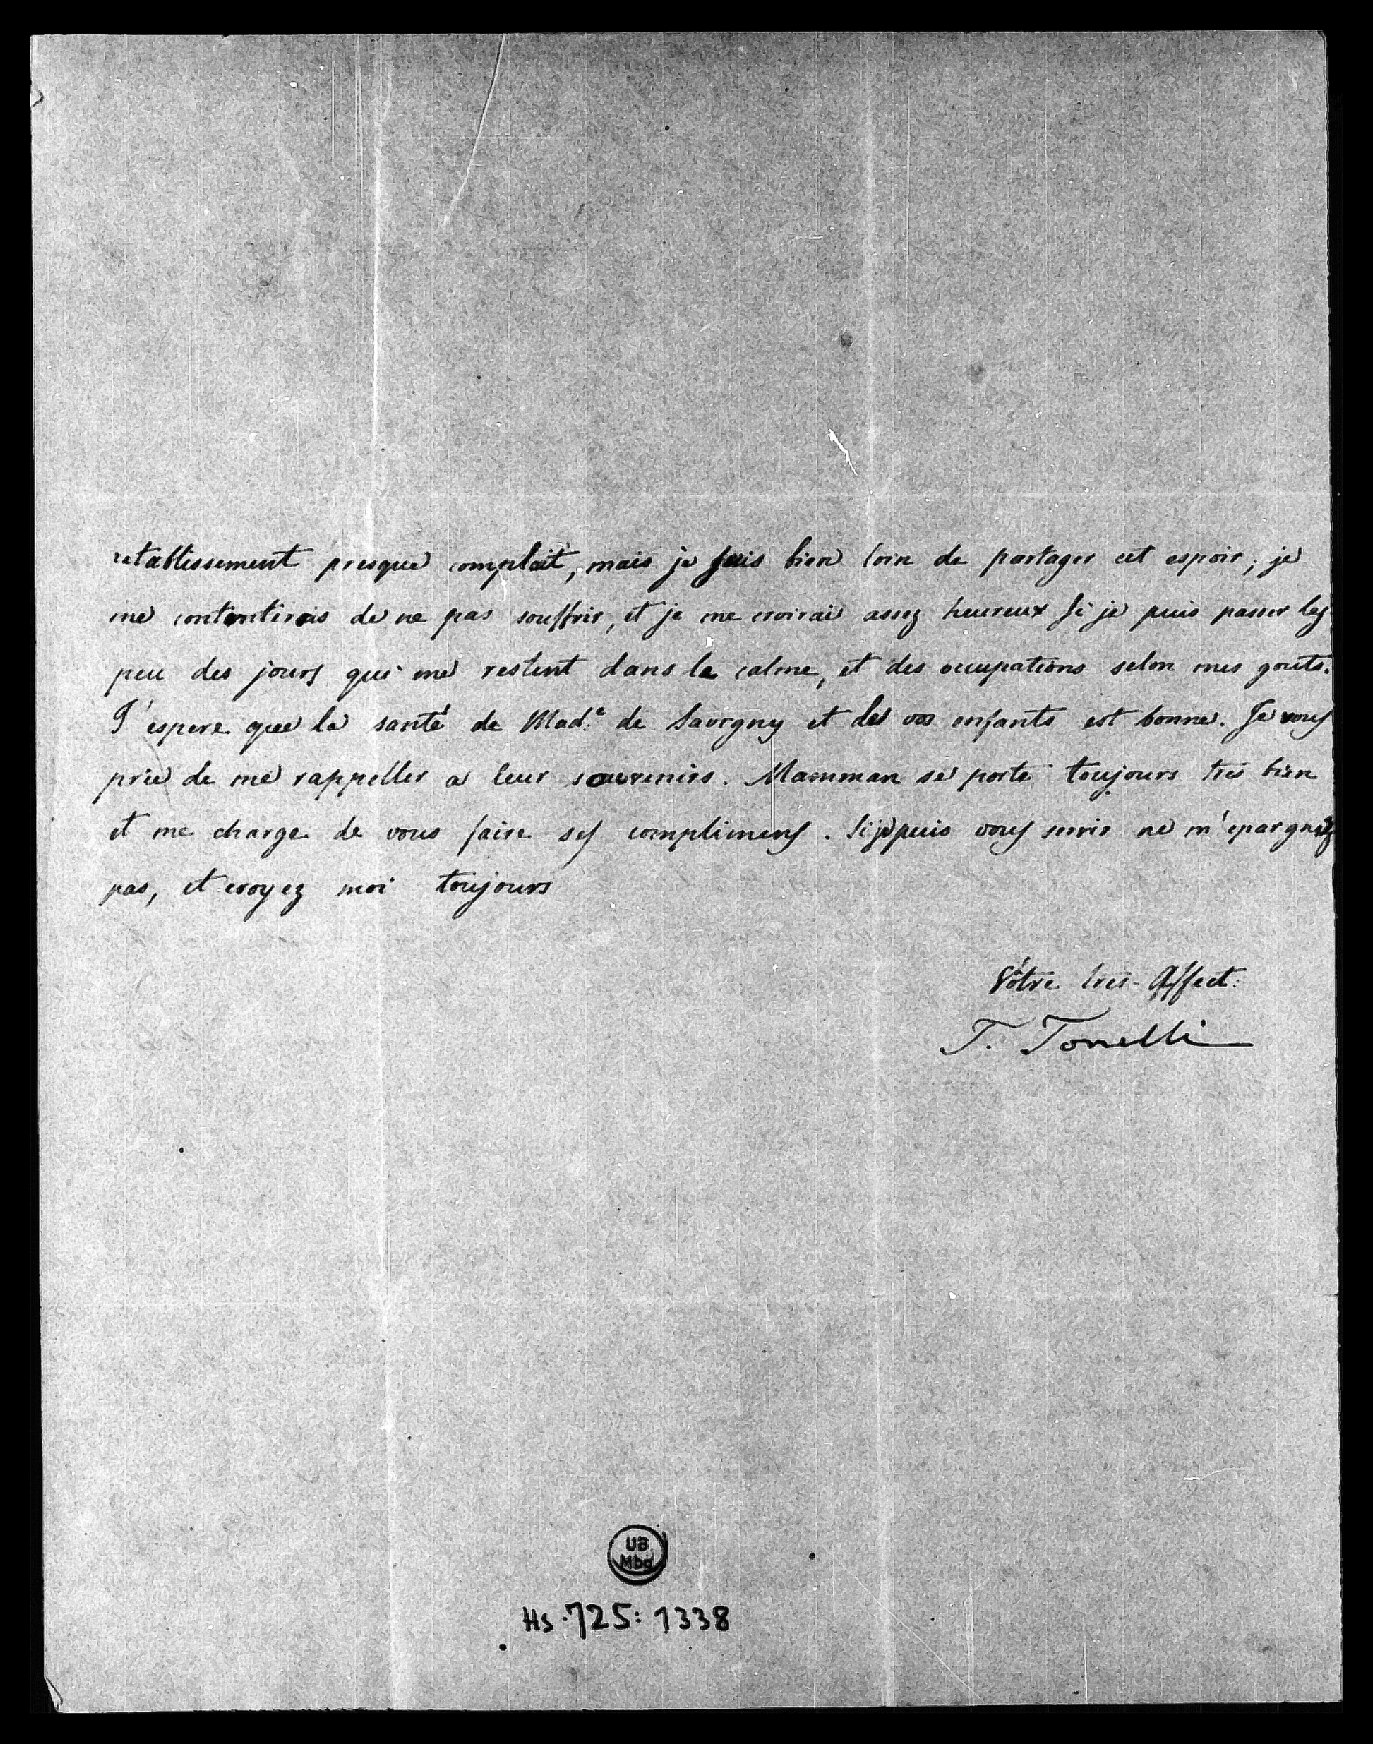 retablissement presque complait, mais je suis bien loin de partager cet espoir, je
me contenterois de ne pas souffrir, et je me croirai assez heureux si je puis passer les
peu des jours qui me restent dans le calme, et des occupations selon mes gouts.
J'espere que la santé de Mad.e de Savigny et de vos enfants est bonne. Je vous
prie de me rappeller a leur souvenirs. Mamman se porte toujours tres bien
et me charge de vous faire ses complimens. Si je puis vous servir ne m'epargnez
pas, et croyez moi toujours
Vôtre tres-Affect:
T. Tonelli
UB
Mbg
Hs. 725: 1338